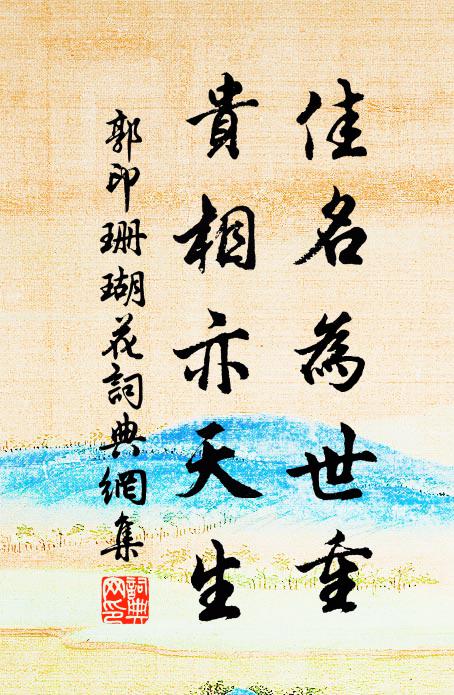 佳名為世重
貴相亦天生
郭印珊瑚花詞典網集
詞典